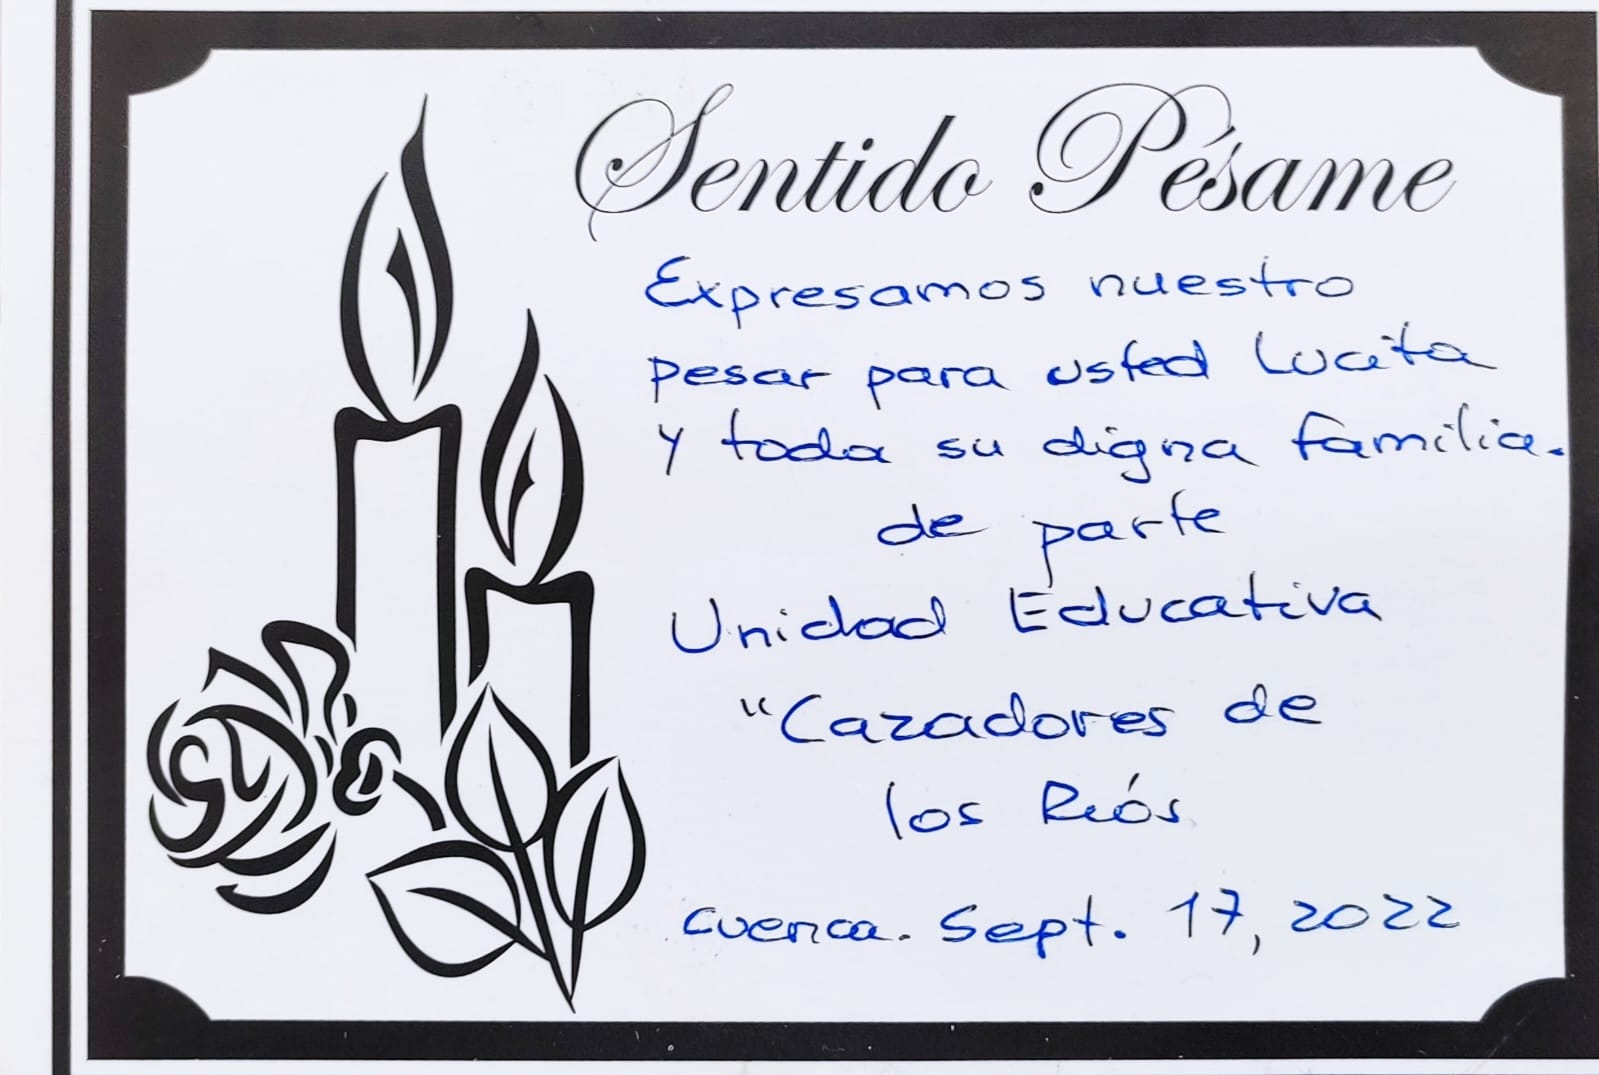 Sentido Pésame
Expresamos nuestro
pesar para usted Lucita
y toda su digna familia.
de parte
Unidad Educativa
"Cazadores de
los Riós
Cuenca. Sept. 17, 2022